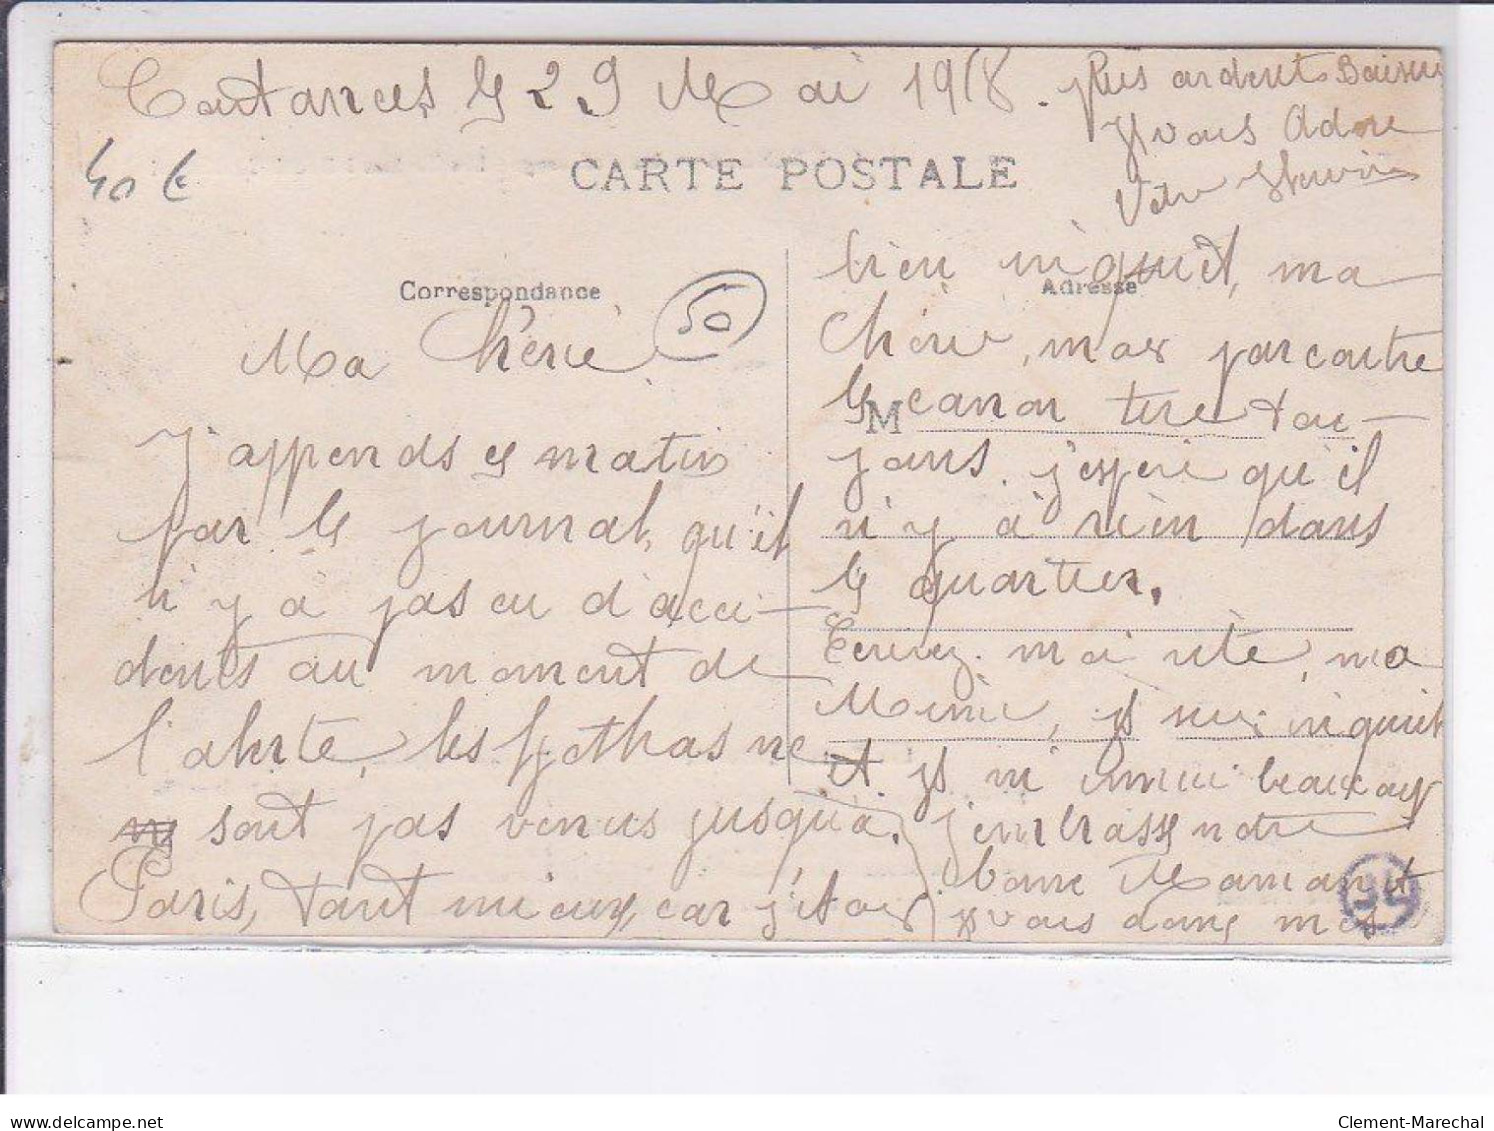 Coutances le 29 Mai 1918.
CARTE POSTALE
40 €
Correspondance
50
Ma Chérie
J'apprends ce matin
par le journal, qu'il
n'y à pas eu d'acci-
dents au moment de
l'alerte, les Gothas ne
sont pas venus jusqu'à
Paris, tant mieux, car j'étais
Adresse
M
bien inquièt, ma
Chérie, mais par contre
le canon tire tou-
jours. j'espère qu'il
n'y à rien dans
le quartier.
Écrivez moi vite, ma
Mimie, je suis inquiet
et je m'ennuie beaucoup
j'embrasse notre
bonne Maman et
je vous donne mes
plus ardents Baisers
je vous Adore
Votre
34
delcampe.net
Clement-Marechal